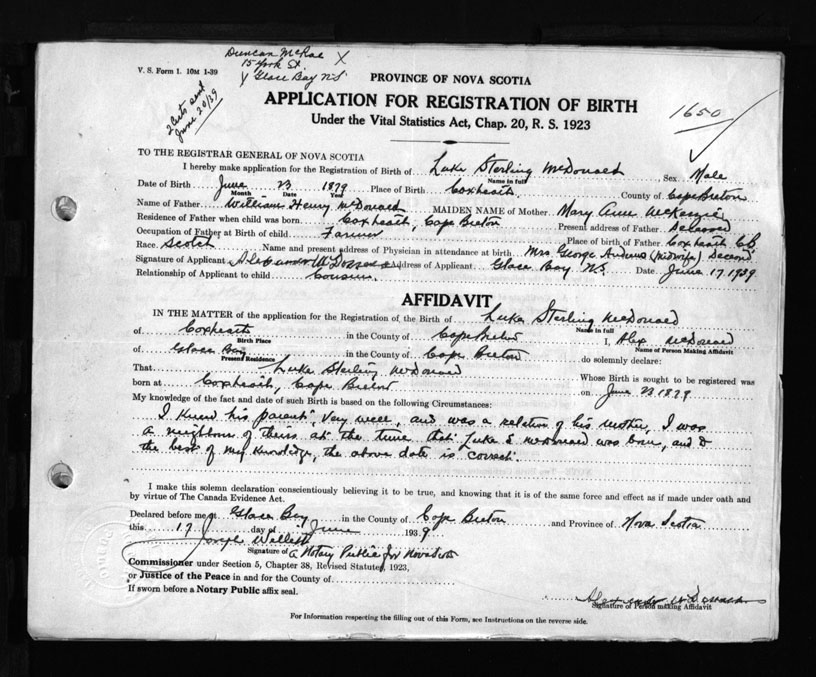 Duncan McRae X
15 York St.
V. S. Form 1. 10M 1-39
Glace Bay N.S.
2 Certs sent
June 20/39
PROVINCE OF NOVA SCOTIA
APPLICATION FOR REGISTRATION OF BIRTH
1650
Under the Vital Statistics Act, Chap. 20, R. S. 1923
TO THE REGISTRAR GENERAL OF NOVA SCOTIA
I hereby make application for the Registration of Birth of Luke Sterling McDonald Sex Male
Name in full
Date of Birth June 23 1879 Place of Birth Coxheath County of Cape Breton
Month Date Year
Name of Father William Henry McDonald MAIDEN NAME of Mother Mary Anne McKenzie
Residence of Father when child was born Coxheath, Cape Breton Present address of Father Deceased
Occupation of Father at Birth of child Farmer Place of birth of Father Coxheath C.B.
Race Scotch Name and present address of Physician in attendance at birth Mrs George Andrews (midwife) Deceased
Signature of Applicant Alexander McDonald Address of Applicant Glace Bay N.S. Date June 17 1939
Relationship of Applicant to child Cousin
AFFIDAVIT
IN THE MATTER of the application for the Registration of the Birth of Luke Sterling McDonald
Name in full
of Coxheath in the County of Cape Breton I, Alex McDonald
Birth Place Name of Person Making Affidavit
of Glace Bay in the County of Cape Breton do solemnly declare:
Present Residence
That Luke Sterling McDonald Whose Birth is sought to be registered was
born at Coxheath, Cape Breton on June 23 1879
My knowledge of the fact and date of such Birth is based on the following Circumstances:
I knew his parents, very well, and was a relation of his mother, I was
a neighbour of theirs at the time that Luke S. McDonald was born, and to
the best of my knowledge, the above date is correct.
I make this solemn declaration conscientiously believing it to be true, and knowing that it is of the same force and effect as if made under oath and
by virtue of The Canada Evidence Act.
Declared before me at Glace Bay in the County of Cape Breton and Province of Nova Scotia
this 17 day of June 1939
Joseph
Signature of a Notary Public for Nova Scotia
Commissioner under Section 5, Chapter 38, Revised Statutes, 1923,
or Justice of the Peace in and for the County of
If sworn before a Notary Public affix seal.
Alexander McDonald
Signature of Person making Affidavit
For Information respecting the filling out of this Form, see Instructions on the reverse side.